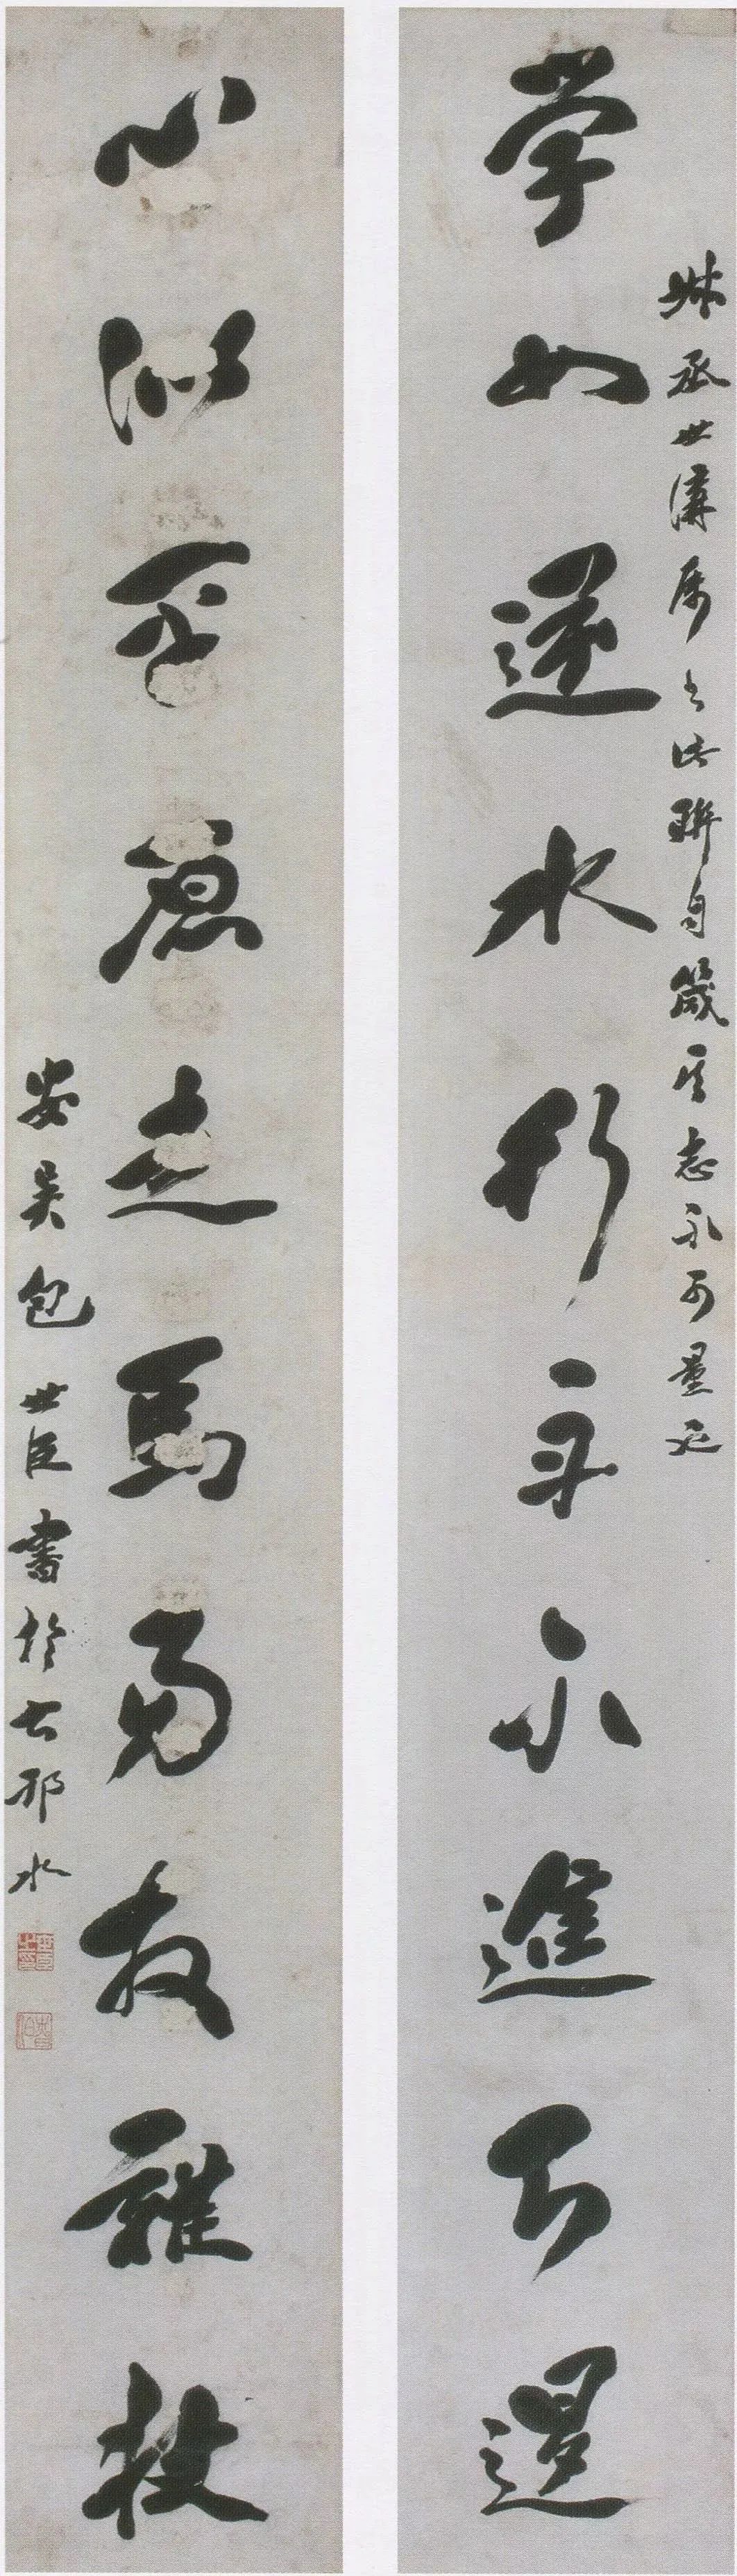 学如逆水行舟不進則退
丞世講属書此聯自箴其志不可量
心似平原走馬易放難收
安吳包世臣書於古邗水